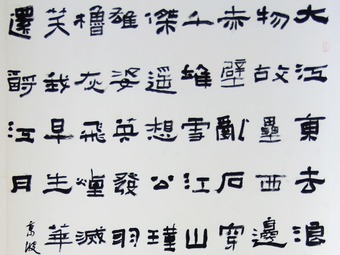 大江東去浪
物故壘西邊
赤壁亂石穿
千堆雪江山
傑遙想公瑾
雄姿英發羽
櫓灰飛煙滅
笑我早生華
還酹江月